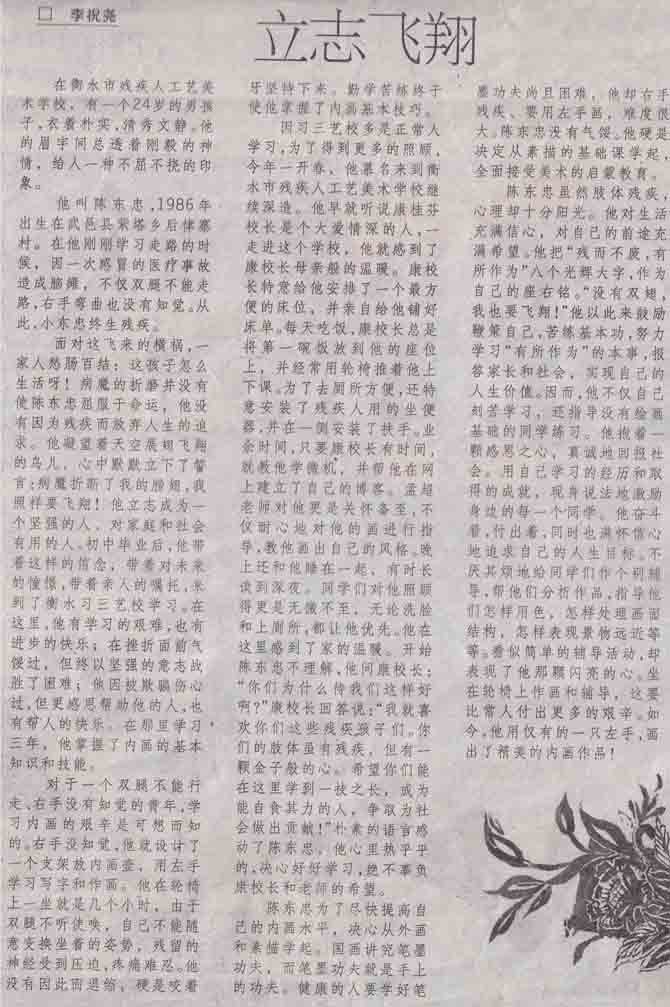 □ 李祝尧
立志飞翔
在衡水市残疾人工艺美
术学校，有一个24岁的男孩
子，衣着朴实，清秀文静。他
的眉宇间总透着刚毅的神
情，给人一种不屈不挠的印
象。
他叫陈东忠，1986年
出生在武邑县紫塔乡后律寨
村。在他刚刚学习走路的时
候，因一次感冒的医疗事故
造成脑瘫，不仅双腿不能走
路，右手弯曲也没有知觉。从
此，小东忠终生残疾。
面对这飞来的横祸，一
家人愁肠百结：这孩子怎么
生活呀！病魔的折磨并没有
使陈东忠屈服于命运，他没
有因为残疾而放弃人生的追
求。他凝望着天空展翅飞翔
的鸟儿，心中默默立下了誓
言：病魔折断了我的翅膀，我
照样要飞翔！他立志成为一
个坚强的人，对家庭和社会
有用的人。初中毕业后，他带
着这样的信念，带着对未来
的憧憬，带着亲人的嘱托，来
到了衡水习三艺校学习。在
这里，他有学习的艰难，也有
进步的快乐；在挫折面前气
馁过，但终以坚强的意志战
胜了困难；他因被欺骗伤心
过，但更感恩帮助他的人，也
有帮人的快乐。在那里学习
三年，他掌握了内画的基本
知识和技能。
对于一个双腿不能行
走、右手没有知觉的青年，学
习内画的艰辛是可想而知
的。右手没知觉，他就设计了
一个支架放内画壶，用左手
学习写字和作画。他在轮椅
上一坐就是几个小时，由于
双腿不听使唤，自己不能随
意变换坐着的姿势，残留的
神经受到压迫，疼痛难忍。他
没有因此而退给，硬是咬着
牙坚持下来。勤学苦练终于
使他掌握了内画基本技巧。
因习三艺校多是正常人
学习，为了得到更多的照顾，
今年一开春，他慕名来到衡
水市残疾人工艺美术学校继
续深造。他早就听说康桂芬
校长是个大爱情深的人，一
走进这个学校，他就感到了
康校长母亲般的温暖。康校
长特意给他安排了一个最方
便的床位，并亲自给他铺好
床单。每天吃饭，康校长总是
将第一碗饭放到他的座位
上，并经常用轮椅推着他上
下课。为了去厕所方便，还特
意安装了残疾人用的坐便
器，并在一侧安装了扶手。业
余时间，只要康校长有时间，
就教他学微机，并帮他在网
上建立了自己的博客。孟超
老师对他更是关怀备至，不
仅耐心地对他的画进行指
导，教他画出自己的风格。晚
上还和他睡在一起，有时长
谈到深夜。同学们对他照顾
得更是无微不至，无论洗脸
和上厕所，都让他优先。他在
这里感到了家的温暖。开始
陈东忠不理解，他问康校长：
“你们为什么待我们这样好
啊？”康校长回答说：“我就喜
欢你们这些残疾孩子们。你
们的肢体虽有残疾，但有一
颗金子般的心。希望你们能
在这里学到一技之长，成为
能自食其力的人，争取为社
会做出贡献！”朴素的语言感
动了陈东忠，他心里热乎乎
的，决心好好学习，绝不辜负
康校长和老师的希望。
陈东忠为了尽快提高自
己的内画水平，决心从外画
和素描学起。国画讲究笔墨
功夫，而笔墨功夫就是手上
的功夫。健康的人要学好笔
墨功夫尚且困难，他却右手
残疾、要用左手画，难度很
大。陈东忠没有气馁。他硬是
决定从素描的基础课学起，
全面接受美术的启蒙教育。
陈东忠虽然肢体残疾，
心理却十分阳光。他对生活
充满信心，对自己的前途充
满希望。他把“残而不废，有
所作为”八个光辉大字，作为
自己的座右铭。“没有双翅，
我也要飞翔！”他以此来鼓励
鞭策自己，苦练基本功，努力
学习“有所作为”的本事，报
答家长和社会，实现自己的
人生价值。因而，他不仅自己
刻苦学习，还指导没有绘画
基础的同学练习。他抱着一
颗感恩之心，真诚地回报社
会。用自己学习的经历和取
得的成就，现身说法地激励
身边的每一个同学。他奋斗
着，付出着，同时也满怀信心
地追求自己的人生目标。不
厌其烦地给同学们作个别辅
导，帮他们分析作品，指导他
们怎样用色，怎样处理画面
结构，怎样表现景物远近等
等。看似简单的辅导活动，却
表现了他那颗闪亮的心。坐
在轮椅上作画和辅导，这要
比常人付出更多的艰辛。如
今，他用仅有的一只左手，画
出了精美的内画作品！